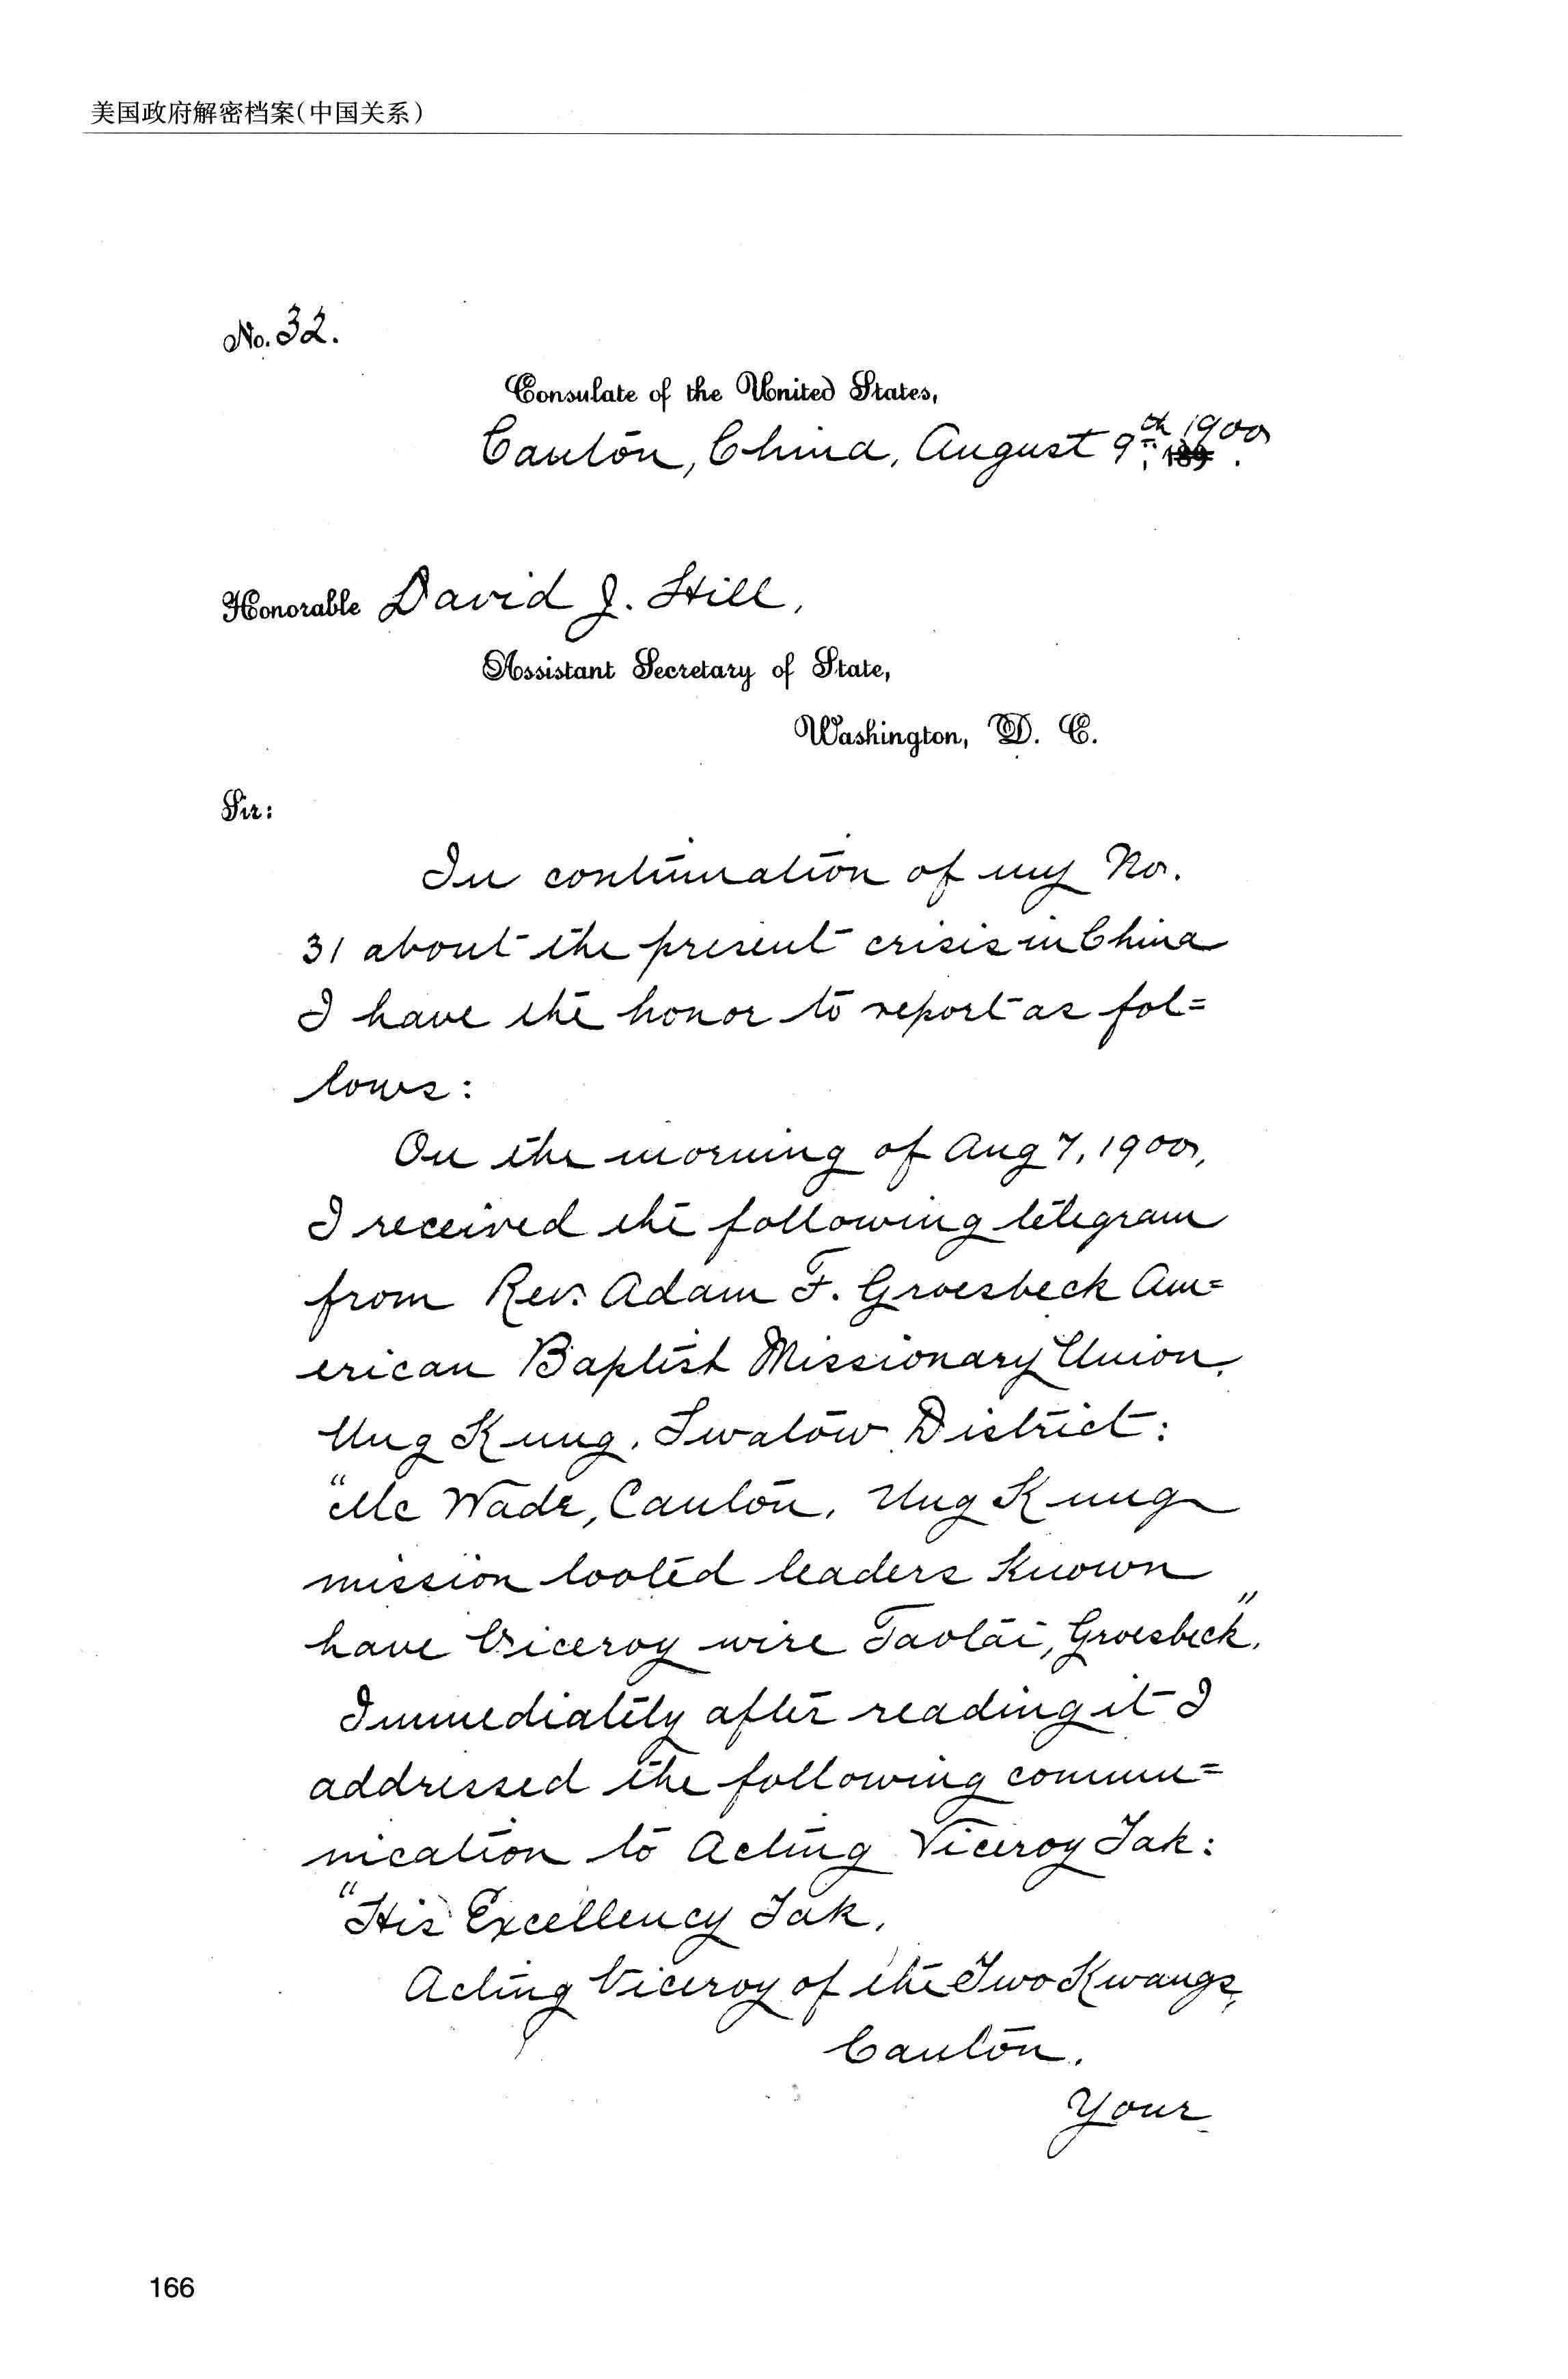 美国政府解密档案(中国关系)
No. 32.
Consulate of the United States,
Canton, China, August 9th 1900.
Honorable David J. Hill,
Assistant Secretary of State,
Washington, D. C.
Sir:
In continuation of my No.
31 about the present crisis in China
I have the honor to report as fol=
lows:
On the morning of Aug 7, 1900,
I received the following telegram
from Rev. Adam F. Groesbeck Am=
erican Baptist Missionary Union,
Ung Kung, Swatow District:
"Mc Wade, Canton, Ung Kung
mission looted leaders known
have Viceroy wire Taotai, Groesbeck".
Immediately after reading it I
addressed the following commu=
nication to Acting Viceroy Tak:
"His Excellency Tak,
Acting Viceroy of the Two Kwangs,
Canton.
Your
166